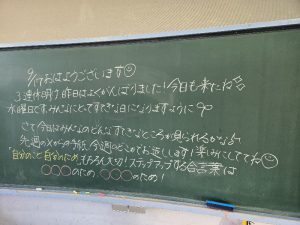 9/17 おはようございます☺
3連休明け、昨日はよくがんばりました！今日も来たね
水曜日です。みんなにとってすてきな日になりますように
さて今日はみんなのどんなすてきなところが見られるかな♪
先週の×からの手紙、今週のどこかでお返しします！楽しみにしててね☺
「自分のこと 自分のため」でがんばる大切！ステップアップする合言葉は
○○○のため ○○○のため！